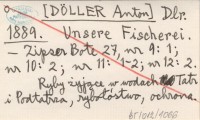 [DÖLLER Anton] Dlr.
1889. Unsere Fischerei.
- Zipser Bote 27, nr 9: 1;
nr 10: 2; nr 11: 1-2; nr 12: 2.
Ryby żyjące w wodach Tatr
i Podtatrza, rybołóstwo, ochrona.